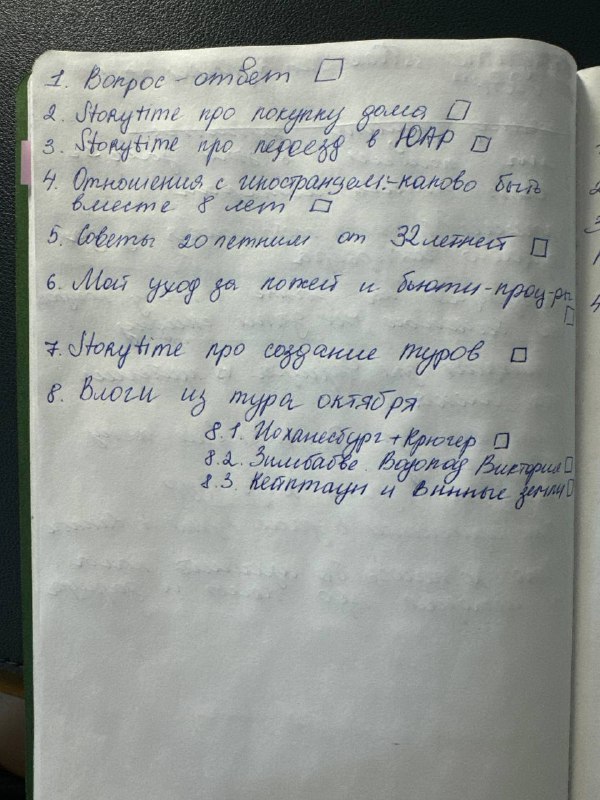 1. Вопрос - ответ □
2. Storytime про покупку дома □
3. Storytime про переезд в ЮАР □
4. Отношения с иностранцем:-каково быть
вместе 8 лет □
5. Советы 20летним от 32летней □
6. Мой уход за кожей и бьюти-проц-ры
□
7. Storytime про создание туров □
8. Влоги из тура октября
8.1. Йоханесбург + Крюгер □
8.2. Зимбабве. Водопад Виктория □
8.3. Кейптаун и винные земли □